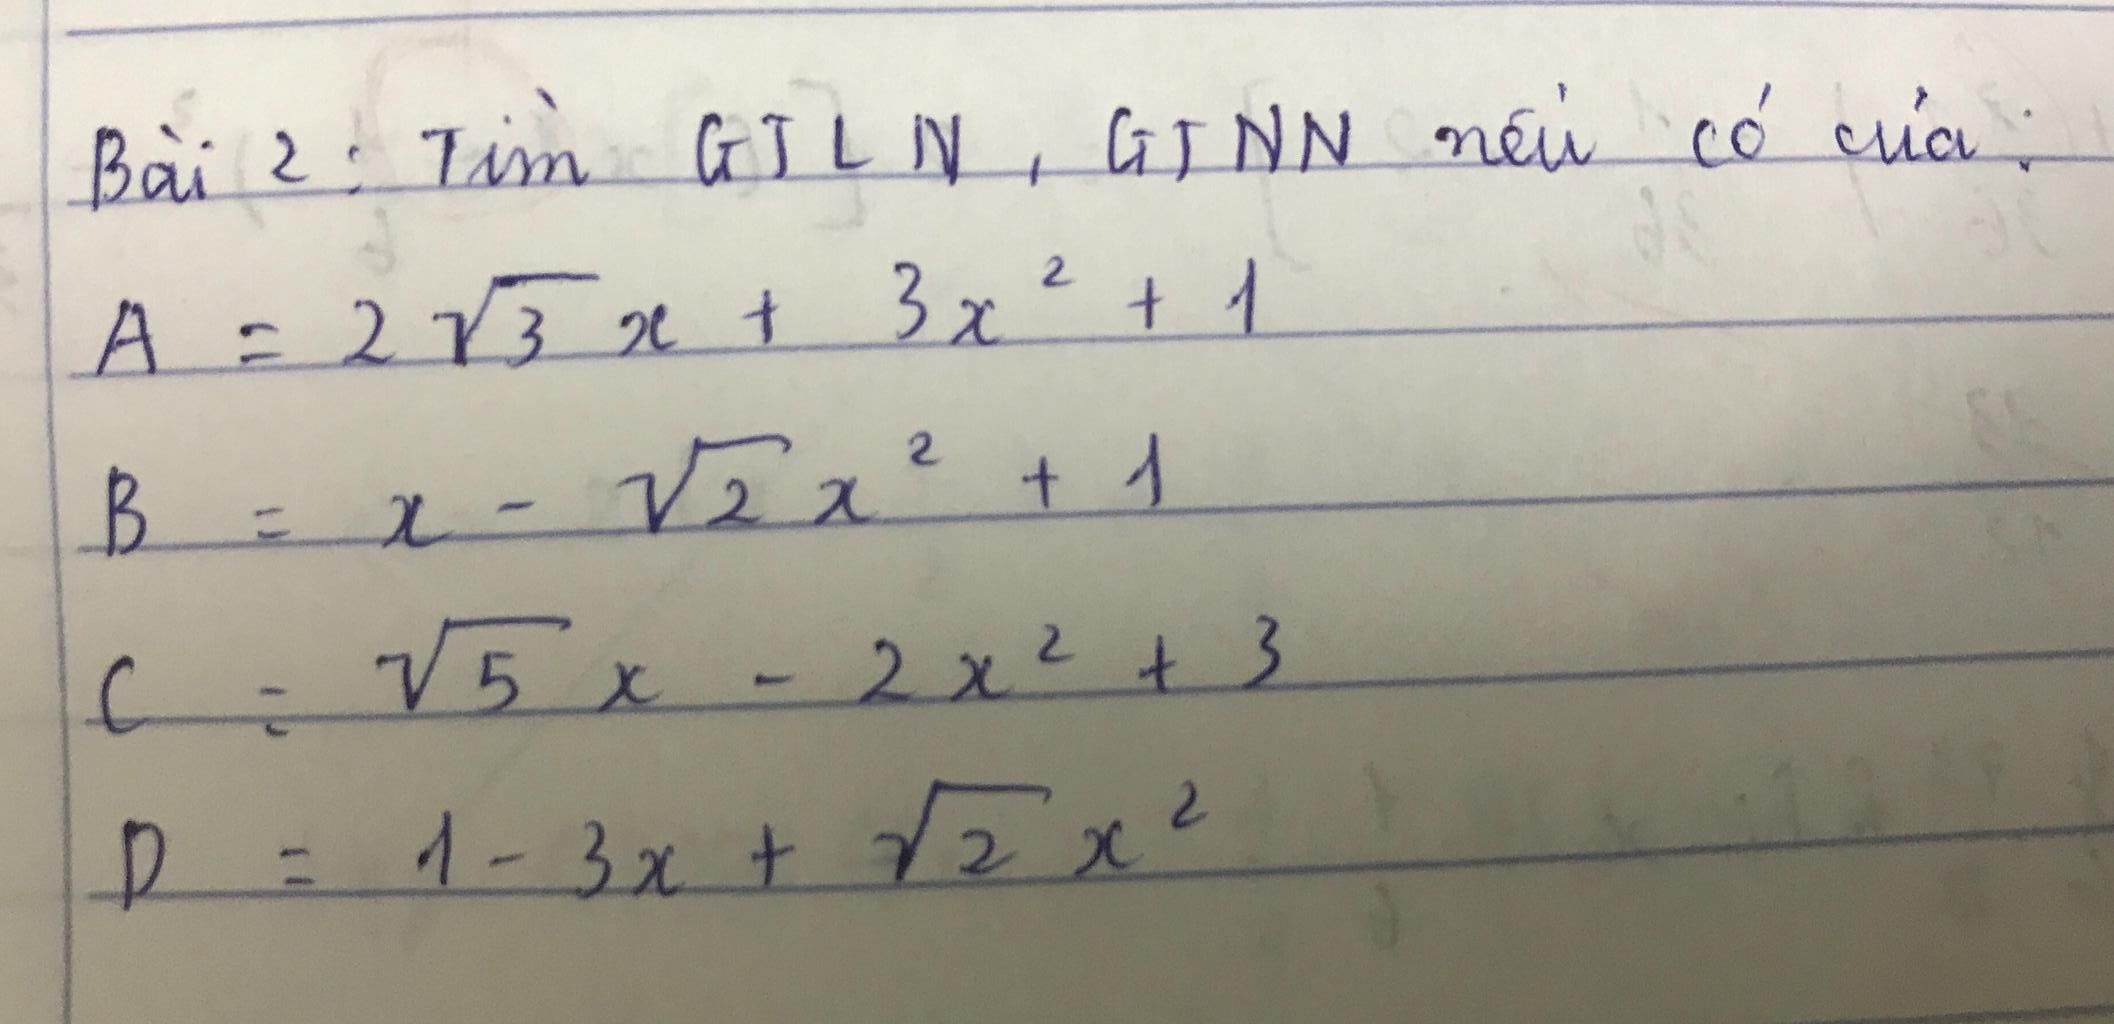 Bài 2: Tìm GTLN, GTNN nếu có của:
A = 2√3 x + 3x² + 1
B = x - √2 x² + 1
C = √5 x - 2x² + 3
D = 1 - 3x + √2 x²